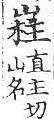 嵀
直主切
山名